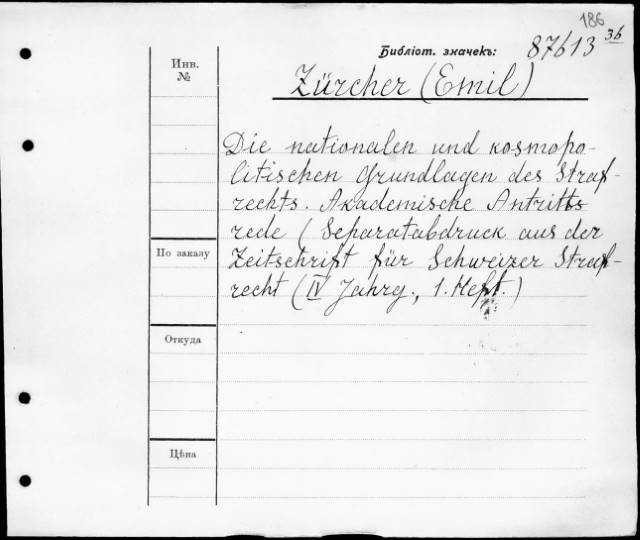 186
Библіот. значекъ: 87613 36
Инв.
№
Zürcher (Emil)
Die nationalen und kosmopo-
litischen Grundlagen des Straf-
rechts. Akademische Antritts
rede (Separatabdruck aus der
По заказу
Zeitschrift für Schweizer Straf-
recht (IV Jahrg., 1. Heft.)
Откуда
Цѣна